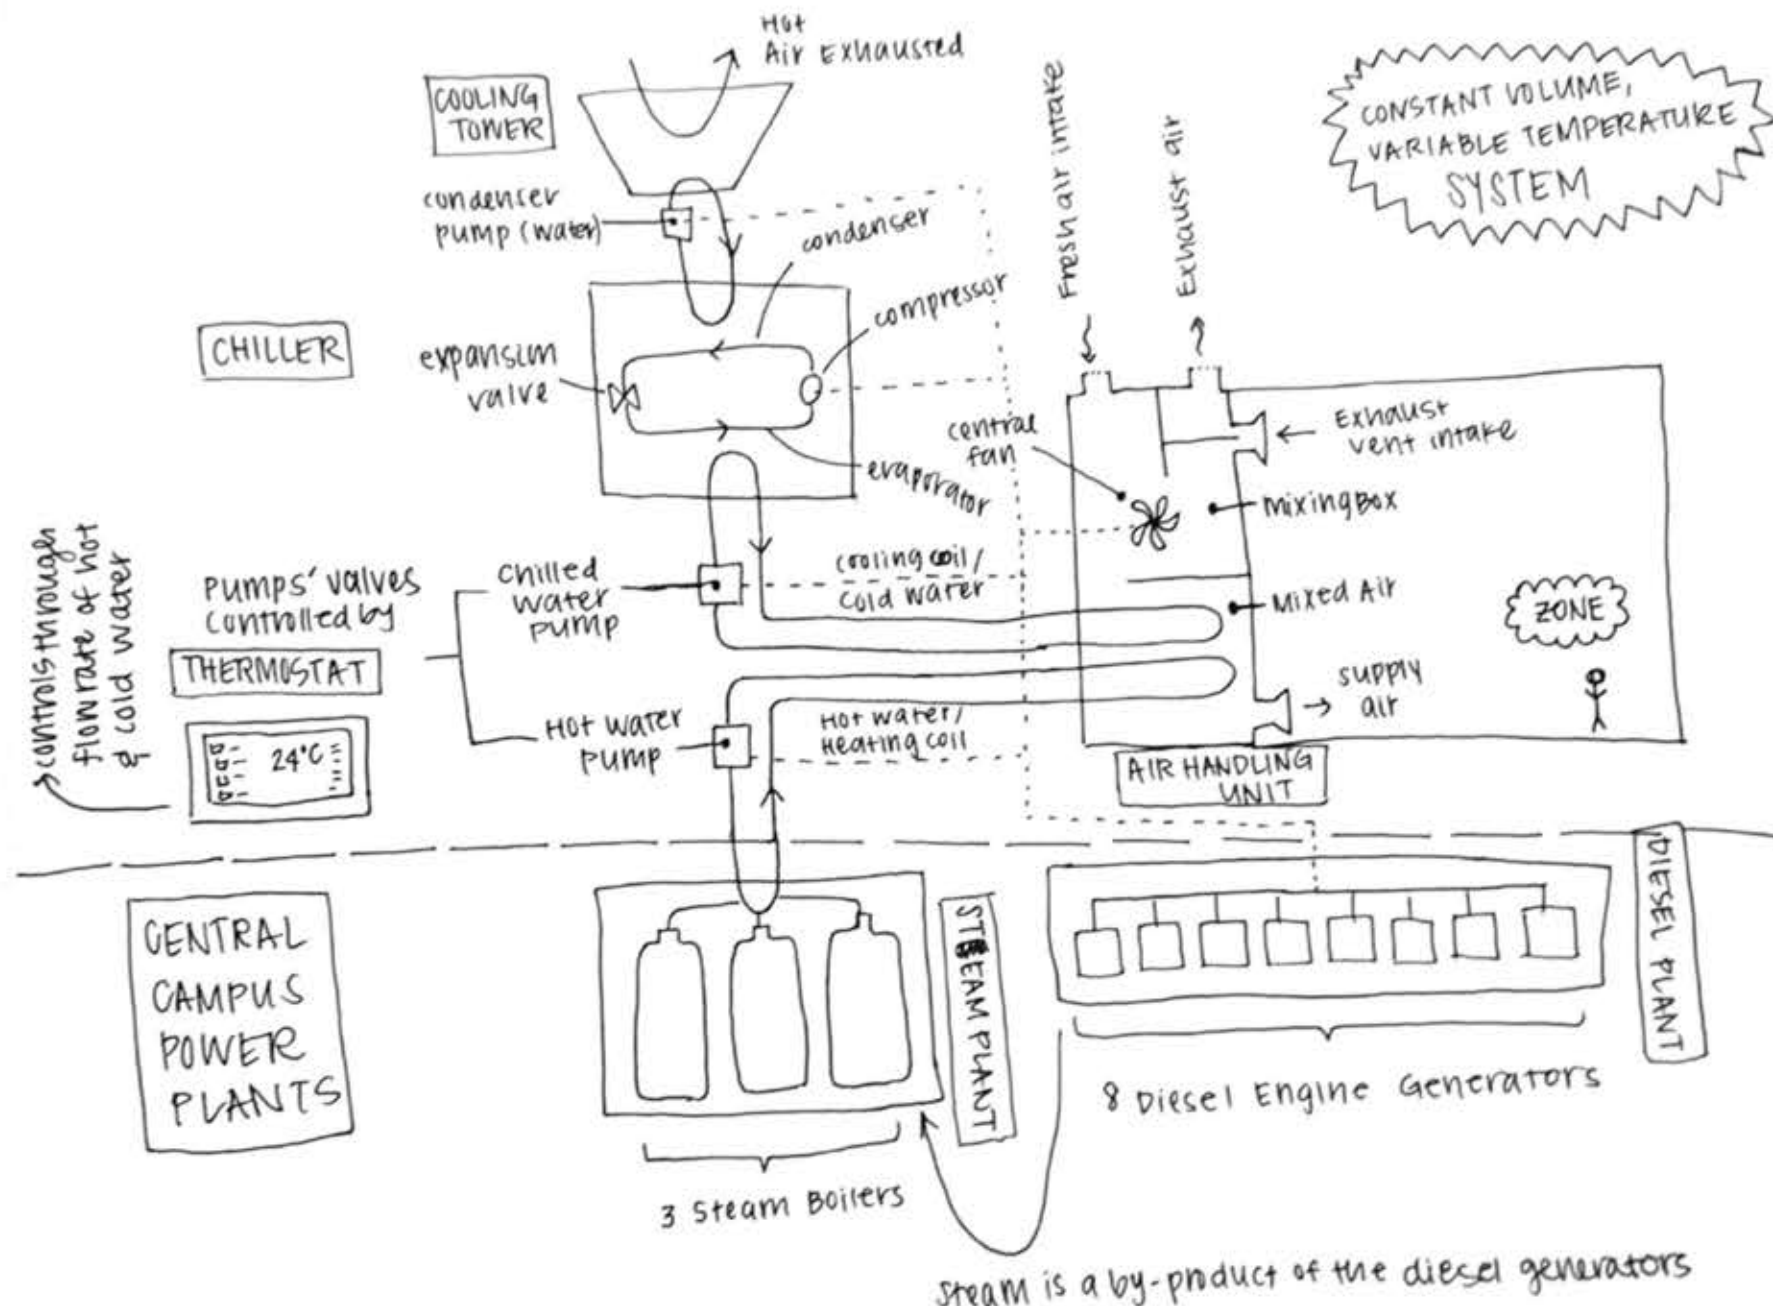 Hot
Air Exhausted
COOLING
TOWER
condenser
pump (water)
condenser
compressor
CHILLER
expansion
valve
evaporator
Fresh air intake
Exhaust air
CONSTANT VOLUME,
VARIABLE TEMPERATURE
SYSTEM
central
fan
Exhaust
vent intake
Mixing Box
Mixed Air
ZONE
supply
air
AIR HANDLING
UNIT
controls through
flow rate of hot
& cold water
Pumps' valves
controlled by
THERMOSTAT
24°C
Chilled
water
pump
cooling coil/
cold water
Hot water
pump
Hot water/
Heating coil
CENTRAL
CAMPUS
POWER
PLANTS
STEAM PLANT
3 Steam Boilers
DIESEL PLANT
8 Diesel Engine Generators
steam is a by-product of the diesel generators